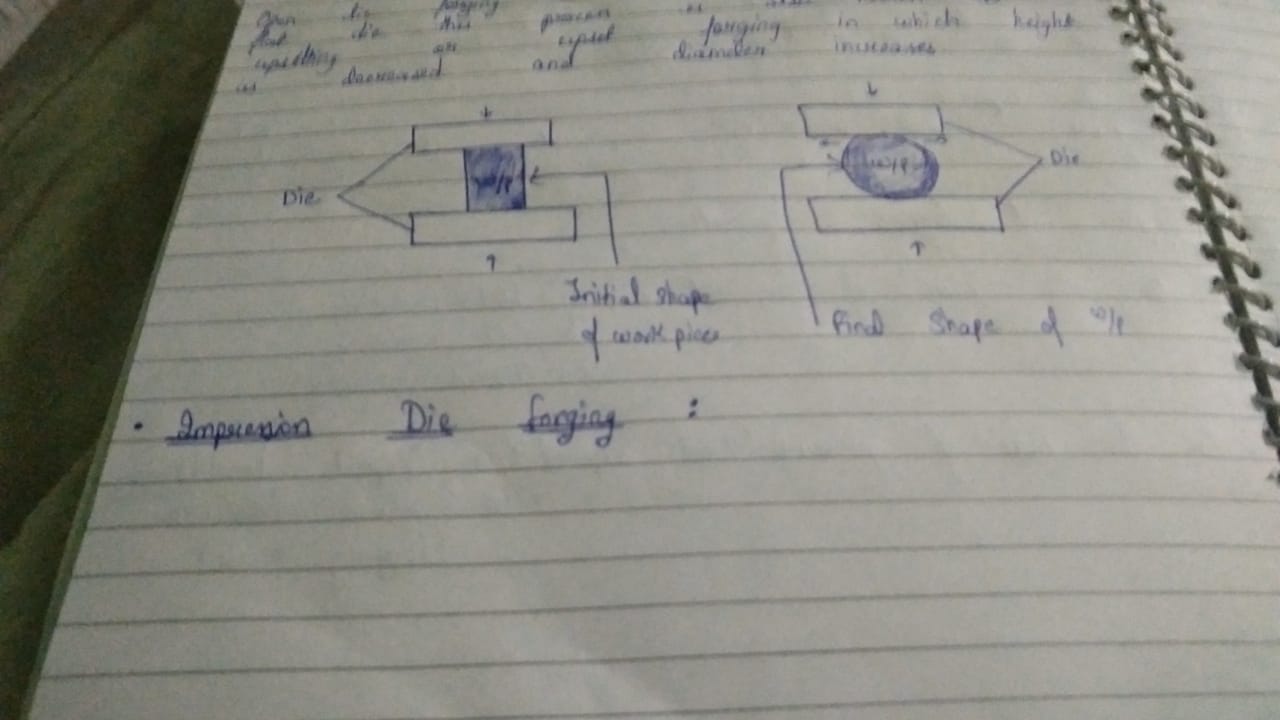 Open die forging
flat die this process is also known as
upsetting or upset forging in which height
is decreased and diameter increases
Die
w/p
w/p
Die
Initial shape
of work piece
final Shape of w/p
• Impression Die forging :